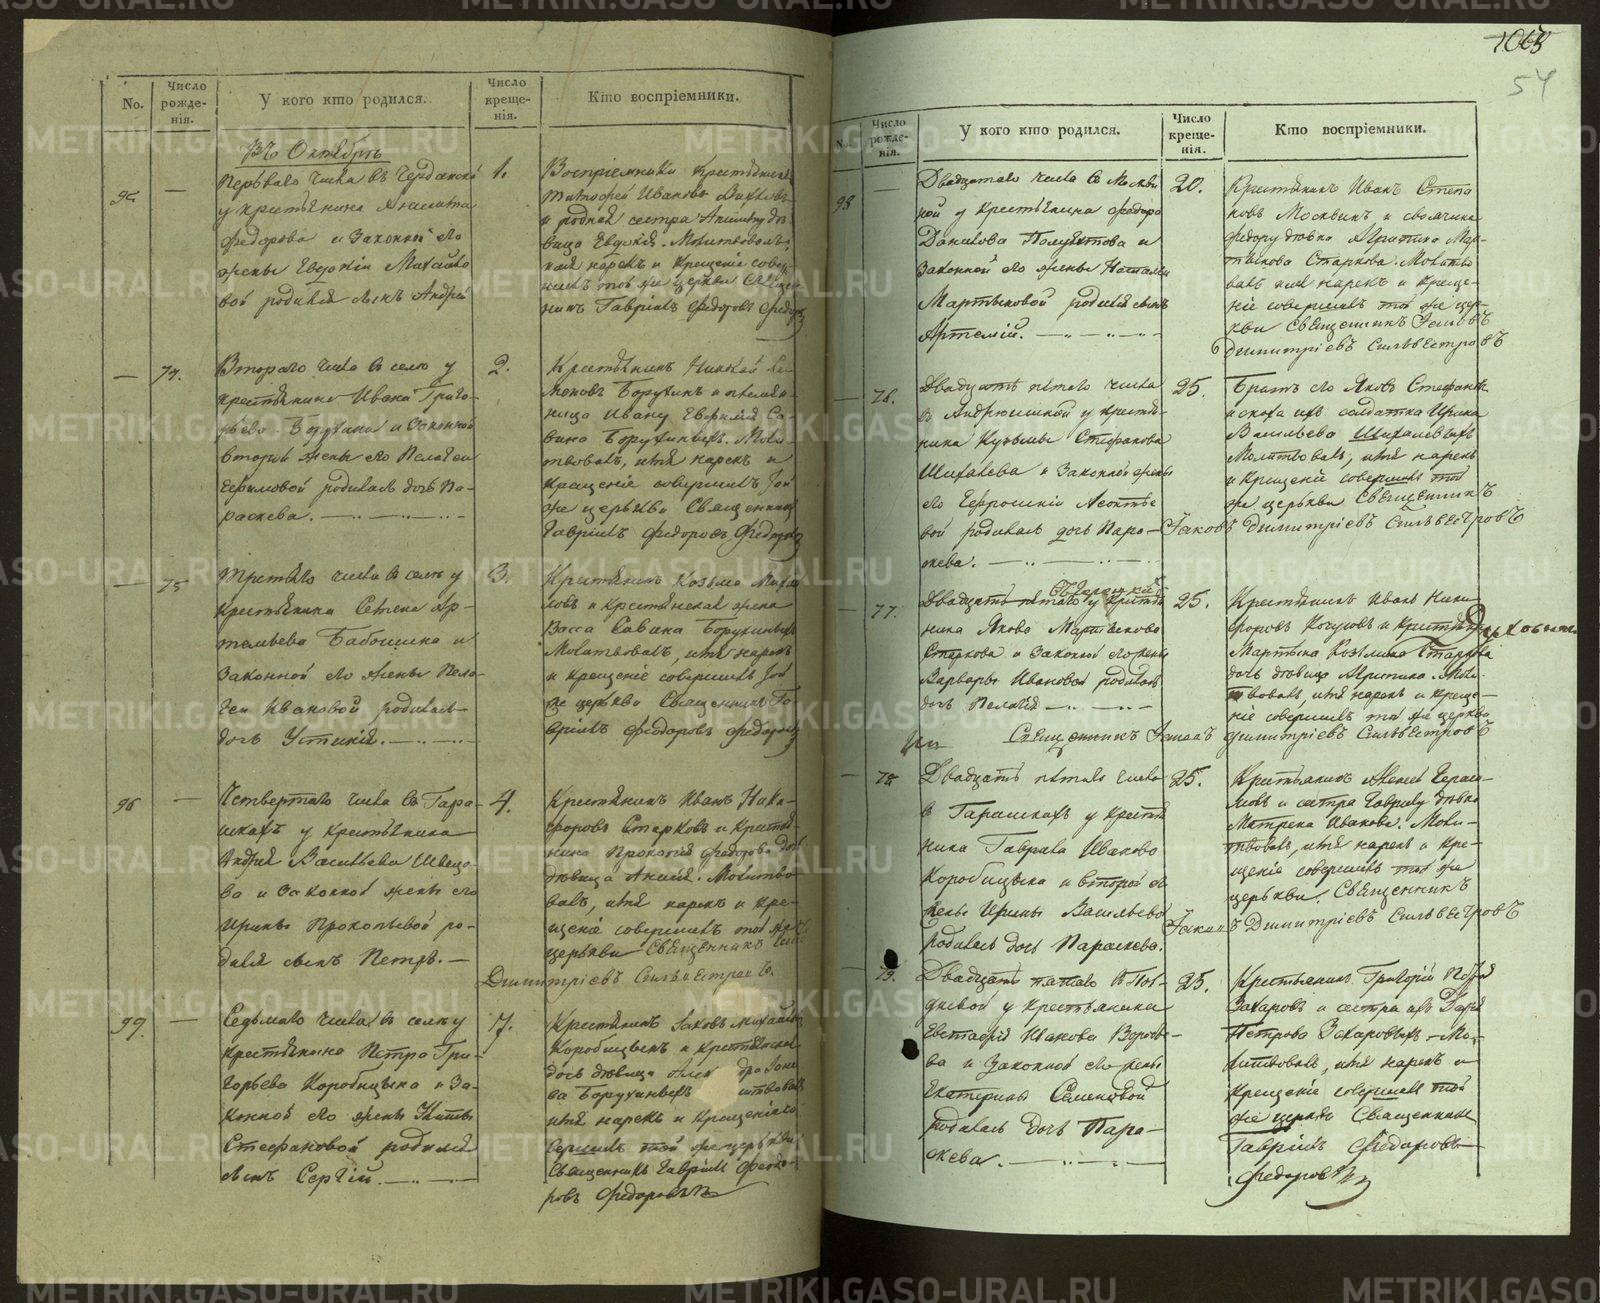 1065
54
No.
Число рожде-нія.
У кого кто родился.
Число креще-нія.
Кто воспріемники.
Въ Октябрѣ
Перваго числа въ
у крестьянина
Федорова и законной его
жены Евдокіи Михайло
вой родился сынъ Андрей
1.
Воспріемники крестьянинъ
Тимофей Ивановъ
и родная сестра
вица Евдокія. Молитвовалъ,
имя нарекъ и крещеніе совер-
шилъ той же церкви Священ-
никъ Гавріилъ Федоровъ Федоровъ
74.
Втораго числа в селѣ у
крестьянина Ивана Григо-
рьева Борухина и законной
второй жены его Пелагеи
Ефимовой родилась дочь Па-
раскева.
2.
Крестьянинъ Николай Се-
меновъ Борухинъ и племян-
ница Ивану Евфимія Са-
вина Борухиныхъ. Моли-
твовалъ, имя нарекъ и
крещеніе совершилъ той
же церкви Священникъ
Гавріилъ Федоровъ Федоровъ
75
Третьяго числа в селѣ у
крестьянина Семена Ар-
темьева Бабошина и
законной его жены Пела-
геи Ивановой родилась
дочь Устинія.
3.
Крестьянинъ Козьма Михай
ловъ и крестьянская жена
Васса Савина Борухиныхъ
Молитвовалъ, имя нарекъ
и крещеніе совершилъ той
же церкви Священникъ Га-
вріилъ Федоровъ Федоровъ
96
Четвертаго числа въ Гара-
шкахъ у крестьянина
Андрея Васильева Швецо-
ва и законной жены его
Ирины Прокопьевой ро-
дился сынъ Петръ.
4.
Крестьянинъ Иванъ Ники-
форовъ Старковъ и крестья-
нина Прокопія Федорова дочь
дѣвица Анисія. Молитво-
валъ, имя нарекъ и кре-
щеніе совершилъ той же
церкви Священникъ
Димитріевъ Сильвестровъ.
99.
Седьмаго числа въ селѣ у
крестьянина Петра Гри-
горьева Коробицына и за-
конной его жены
Стефановой родился
сынъ Сергій.
7.
Крестьянинъ Яковъ Михайловъ
Коробицынъ и крестьянская
дочь дѣвица
ва Борухиныхъ
имя нарекъ и крещеніе со
вершилъ той же церкви
Священникъ Гавріилъ Федо-
ровъ Федоровъ
No.
Число рожде-нія.
У кого кто родился.
Число креще-нія.
Кто воспріемники.
98
Двадцатаго числа в Москви
ной у крестьянина Федора
Данилова Полуектова и
законной его жены Наталіи
Мартыновой родился сынъ
Артемій.
20.
Крестьянинъ Иванъ Степа
новъ Москвинъ и своячина
Федору дѣвка Агрипина Мар-
тынова Старкова. Молитво
валъ имя нарекъ и креще-
ніе совершилъ той же цер-
кви Священникъ Іаковъ
Димитріевъ Сильвестровъ
76.
Двадцать пятаго числа
в Андрюшиной у крестья-
нина Кузьмы Стефанова
Шихалева и законной жены
его Ефросиніи Леонтье
вой родилась дочь Пара-
скева.
25.
Братъ его Яковъ Стефановъ
и сноха ихъ солдатка Ирина
Васильева Шихалевыхъ
Молитвовалъ, имя нарекъ
и крещеніе совершилъ той
же церкви Священникъ
Іаковъ Димитріевъ Сильвестровъ
77.
Двадцать пятаго у крестья
нина Якова Мартынова
Старкова и законной его жены
Варвары Ивановой родилась
дочь Пелагія
25.
Крестьянинъ Иванъ Ники
форовъ
Мартына Козьмина Старкова
дочь дѣвица Агрипина. Моли-
твовалъ, имя нарекъ и креще-
ніе совершилъ той же церкви
Священникъ Іаковъ Димитріевъ Сильвестровъ
78
Двадцать пятаго числа
в Гарашкахъ у крестья
нина Гаврила Иванова
Коробицына и второй его
жены Ирины Васильевой
родилась дочь Параскева.
25.
Крестьянинъ Алексей Гераси-
мовъ и сестра Гаврилу дѣвка
Матрена Иванова. Моли-
твовалъ, имя нарекъ и кре-
щеніе совершилъ той же
церкви. Священникъ
Іаковъ Димитріевъ Сильвестровъ
79.
Двадцать пятаго
у крестьянина
Евстафія Иванова Воробье-
ва и законной его жены
Екатерины Семеновой
родилась дочь Пара-
скева.
25.
Крестьянинъ Григорій
Захаровъ и сестра его Дарія
Петрова Захаровыхъ. Мо-
литвовалъ, имя нарекъ и
крещеніе совершилъ той
же церкви Священникъ
Гавріилъ Федоровъ
Федоровъ
METRIKI.GASO-URAL.RU